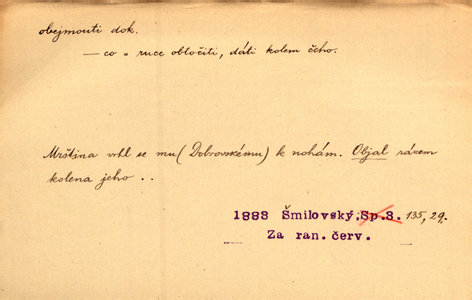 obejmouti dok.
— co = ruce obločiti, dáti kolem čeho.
Mrština vrhl se mu (Dobrovskému) k nohám. Objal rázem
kolena jeho ..
1883 Šmilovský, Sp.3. 135, 29.
Za ran. červ.